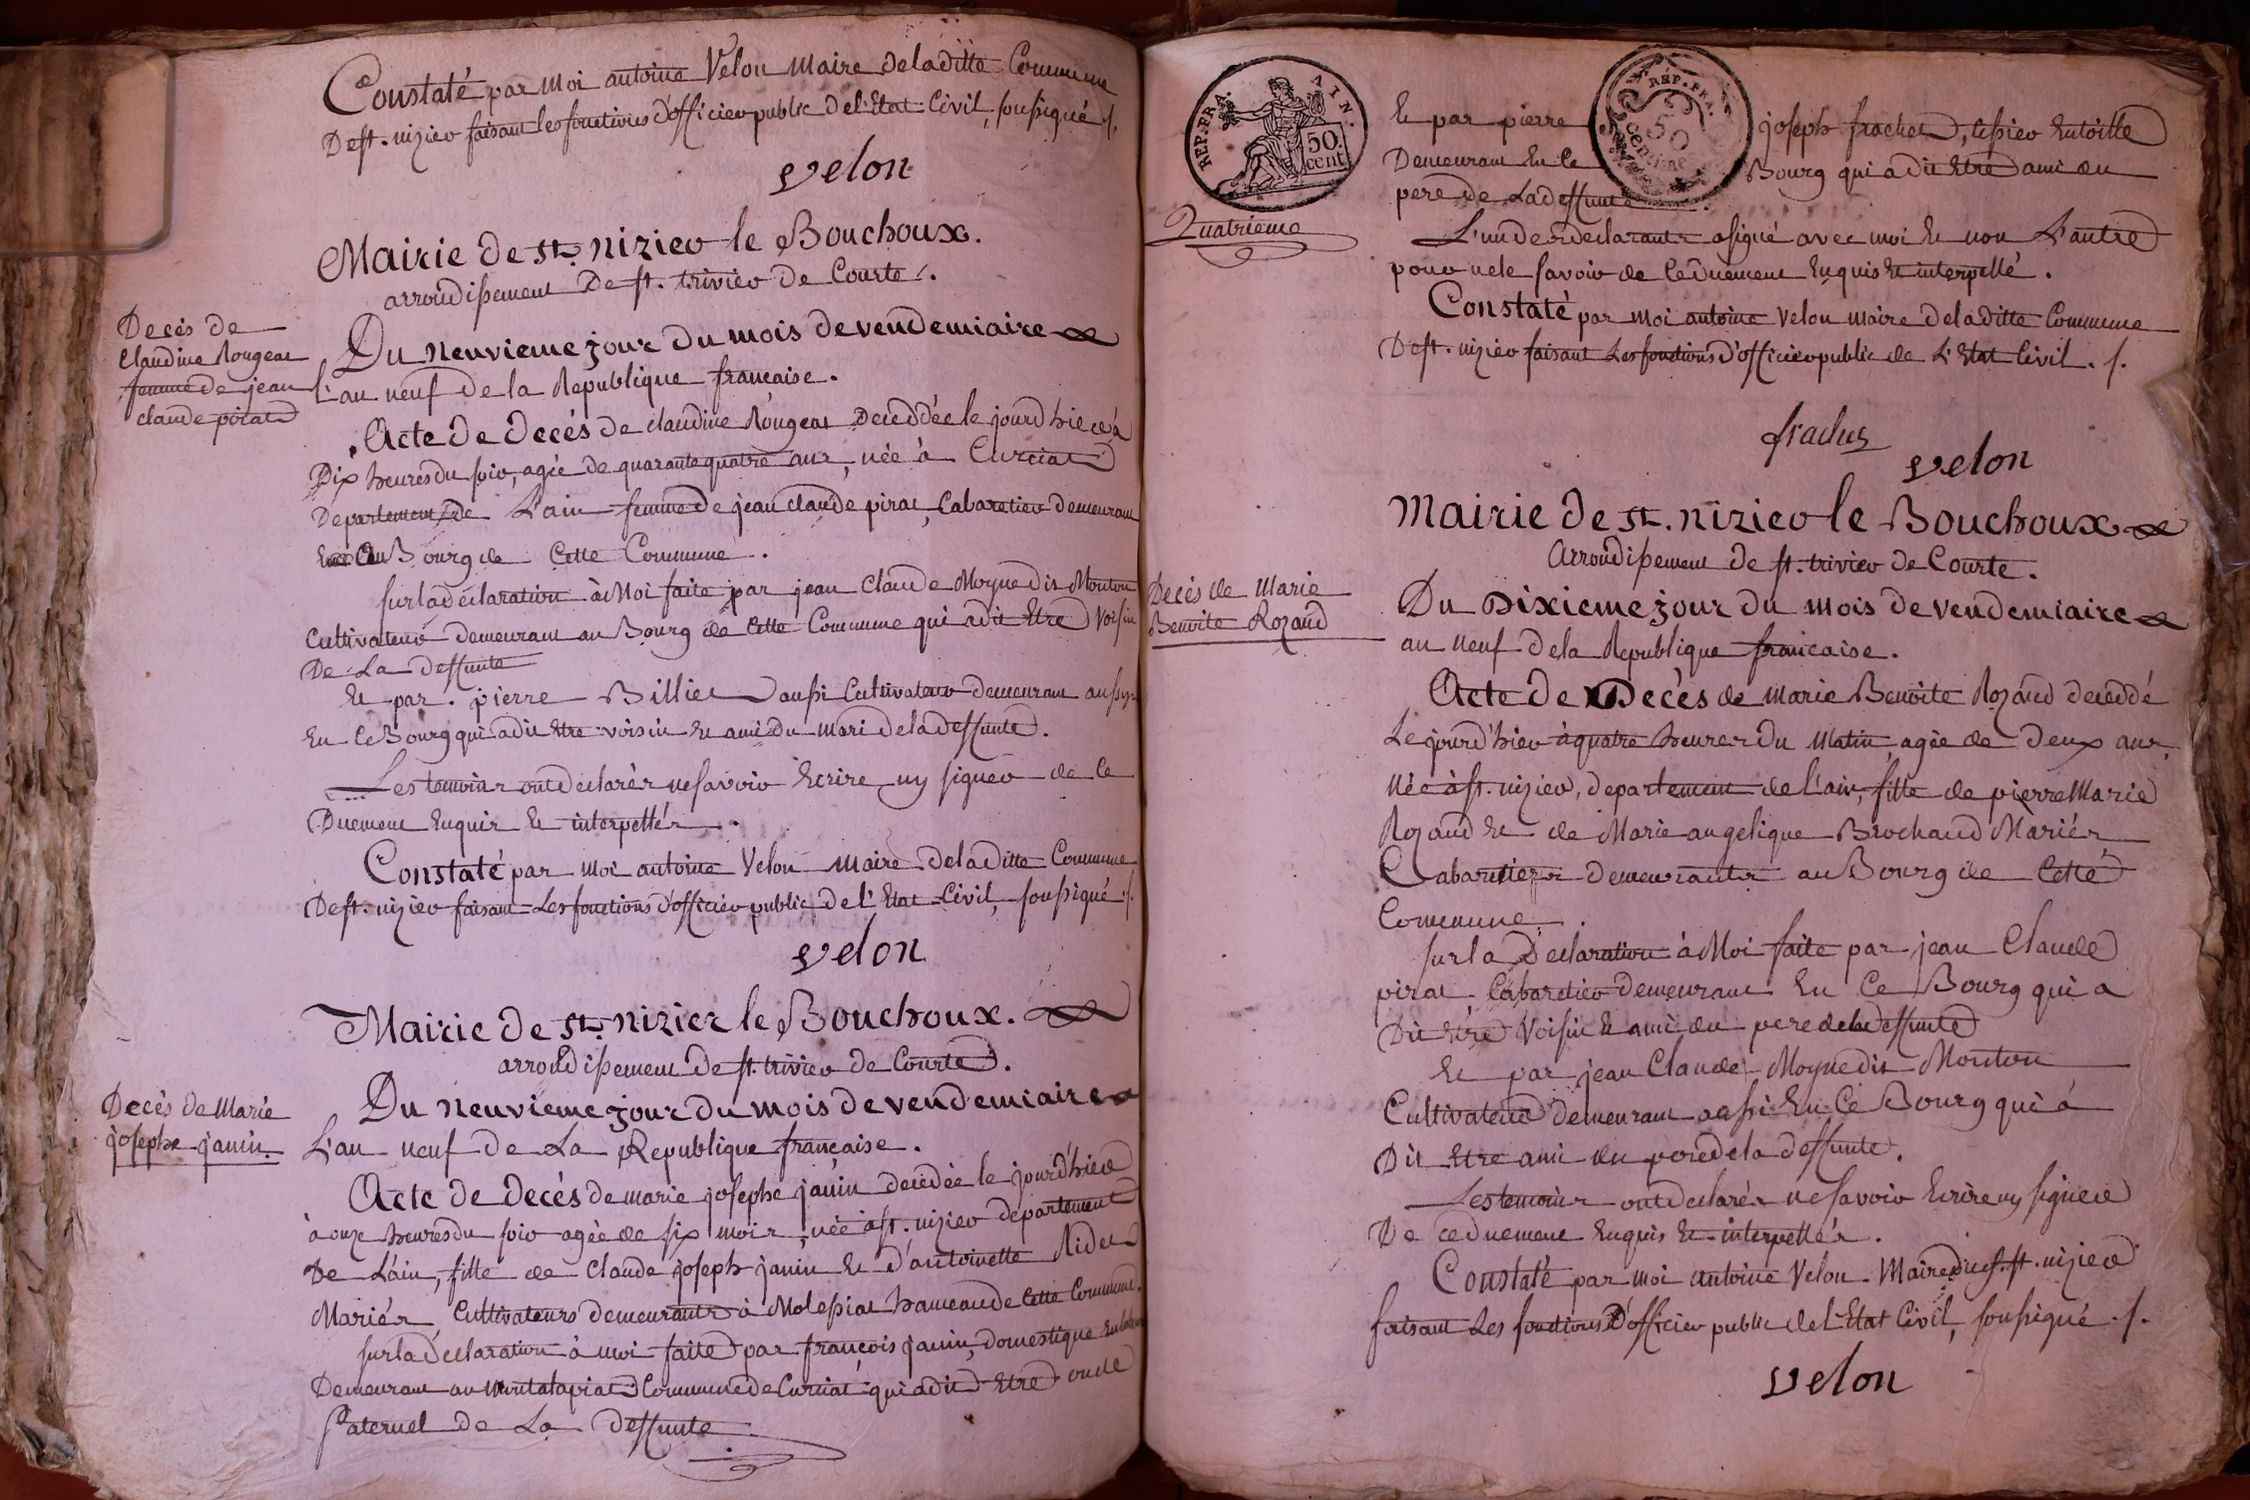 Constaté par moi antoine Velon maire de la ditte Commune
De st. nizier faisant les fonctions d'officier public de l'Etat Civil, soussigné ./.
velon
Mairie de st. nizier le Bouchoux.
arrondissement De st. trivier de Courte.
Decés de
Claudine Rongeat
femme de jean
claude pirat
Du neuvieme jour Du mois de vendemiaire
L'an neuf de la Republique française.
Acte de decés de claudine Rongeat Deceddée le jourd'hier à
Dix heures du soir, agée de quarante quatre ans, née à Curciat
Departement de L'ain femme de jean claude pirat, Cabaretier demeurant
au Bourg de Cette Commune.
sur la déclaration à Moi faite par jean Claude Moyne dit Monton
Cultivateur demeurant au Bourg de Cette Commune qui a dit Etre Voisin
De La deffunte
Et par pierre Billiet aussi Cultivateur demeurant aussy
En Ce Bourg qui a dit Etre voisin Et ami Du mari de la deffunte.
Les temoins ont declarés ne savoir Ecrire ny signer de Ce
Duement Enquis Et interpellés.
Constaté par moi antoine Velon maire de la ditte Commune
De st. nizier faisant Les fonctions d'officier public de l'Etat Civil, soussigné ./.
velon
Mairie de st. nizier le Bouchoux.
arrondissement de st. trivier de Courte.
Decès de Marie
josephe janin.
Du neuvieme jour du mois de vendemiaire
L'an neuf de La Republique française.
Acte de decés de marie josephe janin decedée le jourd'hier
à onze heures du soir agée de six mois, née à st. nizier departement
De L'ain, fille de Claude joseph janin Et d'antoinette Ridet
Mariés Cultivateurs demeurants à Molessiat hameau de Cette Commune.
sur la déclaration à moi faite par françois janin, domestique
Demeurant au Commune de Curciat qui a dit Etre oncle
Paternel de La deffunte
REP. FRA. AIN.
50. cent.
Quatrieme
REP. FRA.
50
centimes
Et par pierre joseph frachet, tissier En toille
Demeurant En Ce Bourg qui a dit Etre ami du
pere de La deffunte
L'un des declarants a signé avec moi Et non L'autre
pour ne le savoir de Ce Duement Enquis Et interpellé.
Constaté par moi antoine Velon maire de la ditte Commune
De st. nizier faisant Les fonctions d'officier public de L'Etat Civil. ./.
velon
Mairie de st. nizier le Bouchoux
Arrondissement de st. trivier de Courte.
Decès de Marie
Benoite Rozand
Du Dixieme jour du mois de vendemiaire
an neuf de la Republique française.
Acte de Decès de Marie Benoite Rozand deceddé
Le jourd'hier à quatre heures du matin, agée de deux ans,
Née à st. nizier, departement de l'ain, fille de pierre Marie
Rozand Et de Marie angelique Brochand Mariés
Cabarettiers demeurants au Bourg de Cette
Commune.
sur la Declaration à Moi faite par jean Claude
pirat Cabaretier demeurant En Ce Bourg qui a
Dit Etre Voisin Et ami du pere de la deffunte
Et par jean Claude Moyne dit Monton
Cultivateur demeurant aussi En Ce Bourg qui à
Dit Etre ami du pere de la deffunte.
Les temoins ont declarés ne savoir Ecrire ny signer
De ce duement Enquis Et interpellés.
Constaté par moi antoine Velon Maire dud. st. nizier
faisant Les fonctions D'officier public de l'Etat Civil, soussigné ./.
velon